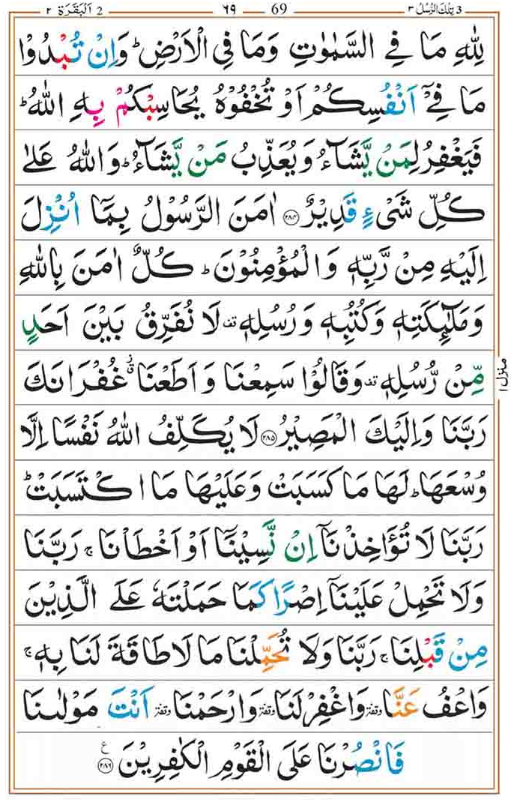 ٣ تِلْكَ الرُّسُل 3 69 ٦٩ 2 اَلْبَقَرَة ٢
لِلّٰهِ مَا فِى السَّمٰوٰتِ وَمَا فِى الْاَرْضِ ؕ وَاِنْ تُبْدُوْا
مَا فِىْۤ اَنْفُسِكُمْ اَوْ تُخْفُوْهُ يُحَاسِبْكُمْ بِهِ اللّٰهُ ؕ
فَيَغْفِرُ لِمَنْ يَّشَآءُ وَيُعَذِّبُ مَنْ يَّشَآءُ ؕ وَاللّٰهُ عَلٰى
كُلِّ شَىْءٍ قَدِيْرٌ ﴿۲۸۴﴾ اٰمَنَ الرَّسُوْلُ بِمَاۤ اُنْزِلَ
اِلَيْهِ مِنْ رَّبِّهٖ وَالْمُؤْمِنُوْنَ ؕ كُلٌّ اٰمَنَ بِاللّٰهِ
وَمَلٰٓئِكَتِهٖ وَكُتُبِهٖ وَرُسُلِهٖ قف لَا نُفَرِّقُ بَيْنَ اَحَدٍ
مِّنْ رُّسُلِهٖ قف وَقَالُوْا سَمِعْنَا وَاَطَعْنَا ٘ۗ غُفْرَانَكَ
رَبَّنَا وَاِلَيْكَ الْمَصِيْرُ ﴿۲۸۵﴾ لَا يُكَلِّفُ اللّٰهُ نَفْسًا اِلَّا
وُسْعَهَا ؕ لَهَا مَا كَسَبَتْ وَعَلَيْهَا مَا اكْتَسَبَتْ ؕ
رَبَّنَا لَا تُؤَاخِذْنَاۤ اِنْ نَّسِيْنَاۤ اَوْ اَخْطَاْنَا ۚ رَبَّنَا
وَلَا تَحْمِلْ عَلَيْنَاۤ اِصْرًا كَمَا حَمَلْتَهٗ عَلَى الَّذِيْنَ
مِنْ قَبْلِنَا ۚ رَبَّنَا وَلَا تُحَمِّلْنَا مَا لَا طَاقَةَ لَنَا بِهٖ ۚ
وَاعْفُ عَنَّا وقفة وَاغْفِرْ لَنَا وقفة وَارْحَمْنَا وقفة اَنْتَ مَوْلٰىنَا
فَانْصُرْنَا عَلَى الْقَوْمِ الْكٰفِرِيْنَ ﴿۲۸۶﴾ ع
منزل ١